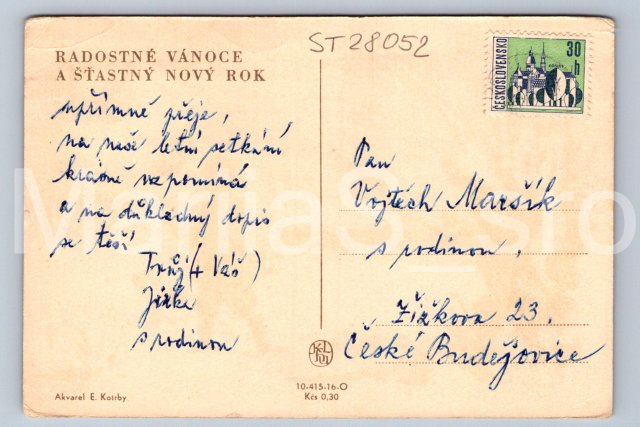 ST28052
RADOSTNÉ VÁNOCE
A ŠŤASTNÝ NOVÝ ROK
upřímně přeje,
na naše letní setkání
krásně vzpomíná
a na důkladný dopis
se těší
Tvůj (+ Váš)
Jirka
s rodinou
Akvarel E. Kotrby
ČESKOSLOVENSKO
30
h
Pan
Vojtěch Maršík
s rodinou,
Žižkova 23.
České Budějovice
10-415-16-O
Kčs 0,30